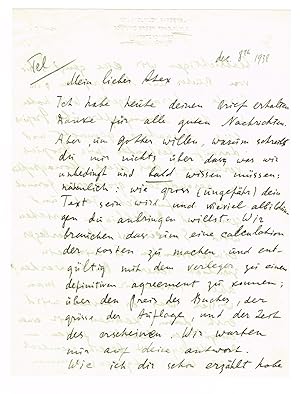 Tel.
dec 8th 1938
Mein lieber Alex
Ich habe heute deinen brief erhalten
Danke für alle guten Nachrichten.
Aber um gottes willen, warum schreibst
du mir nichts über das, was wir
unbedingt und bald wissen müssen:
nämlich: wie gross (ungefähr) dein
Text sein wird und wieviel abbildun
gen du anbringen willst. Wir
brauchen das um eine calculation
der kosten zu machen und ent-
gültig mit dem verleger zu einen
definitiven agreement zu kommen;
über den Preis des Buches, der
grösse der Auflage, und der Zeit
des erscheinen. Wir warten
nur auf deine antwort.
Wie ich dir schon erzählt habe